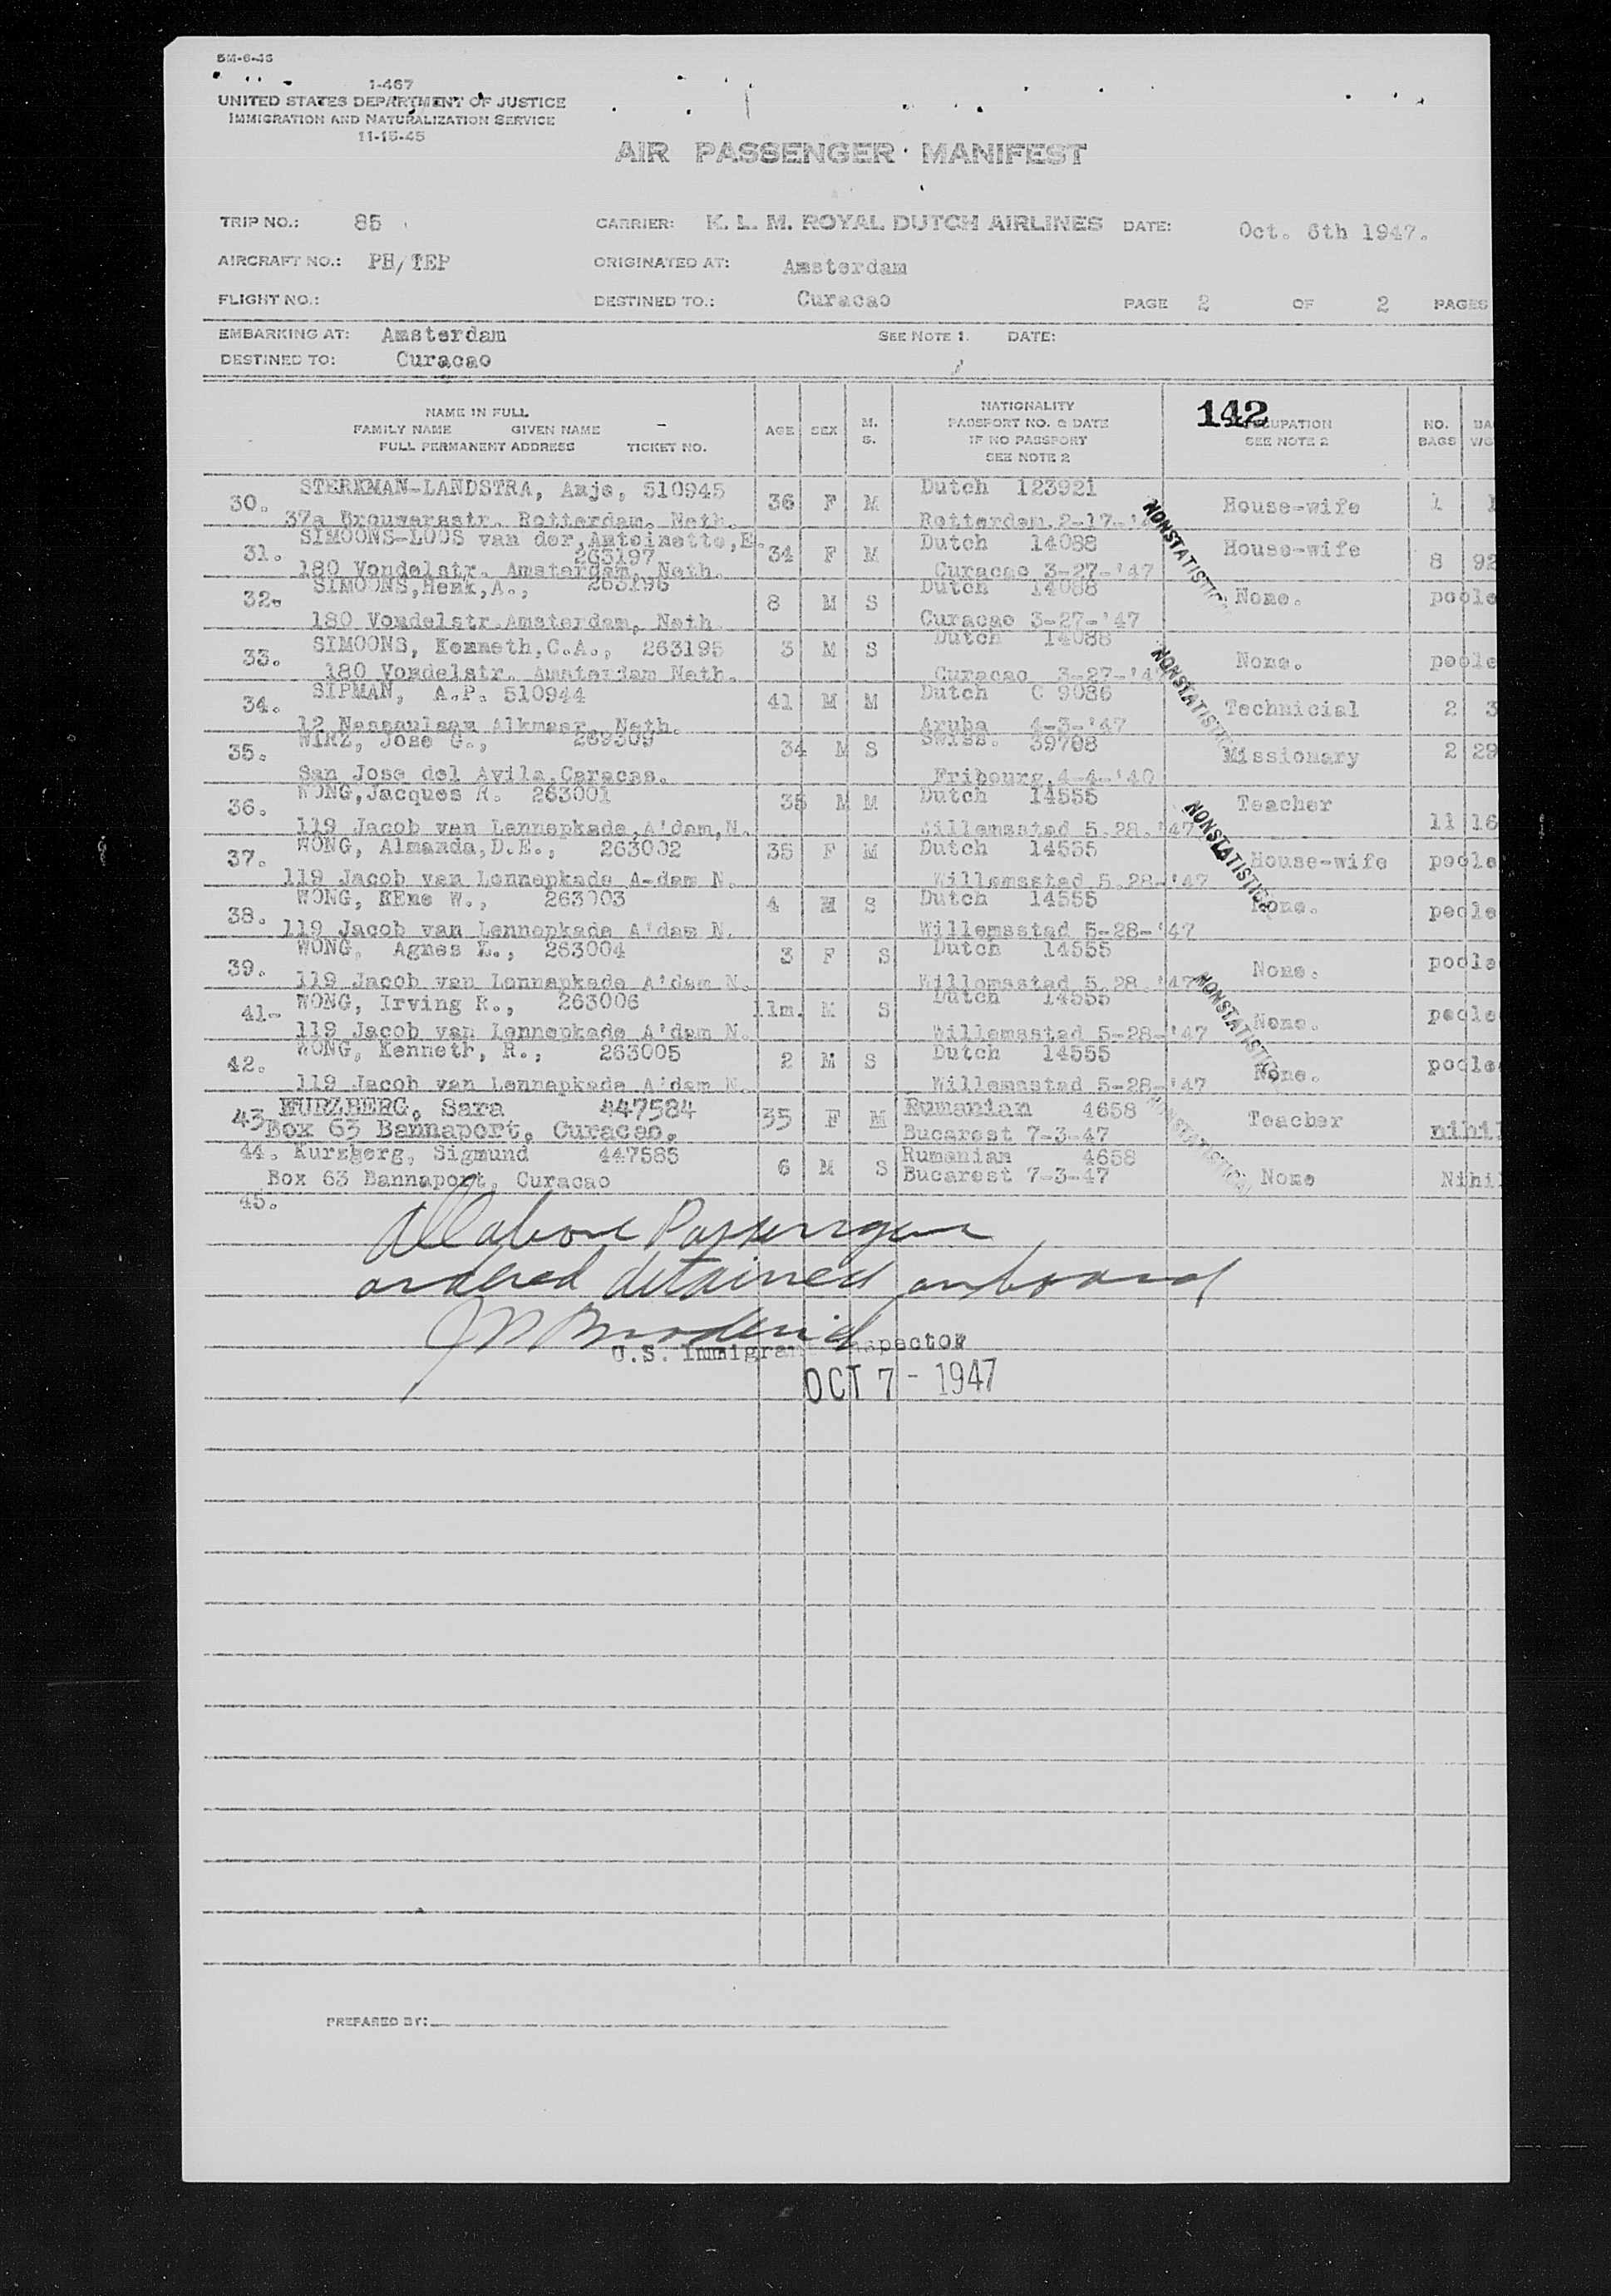 5M-6-46
1-467
UNITED STATES DEPARTMENT OF JUSTICE
IMMIGRATION AND NATURALIZATION SERVICE
11-15-45
AIR PASSENGER MANIFEST
TRIP NO.: 85 CARRIER: K. L. M. ROYAL DUTCH AIRLINES DATE: Oct. 6th 1947.
AIRCRAFT NO.: PH/TEP ORIGINATED AT: Amsterdam
FLIGHT NO.: DESTINED TO.: Curacao PAGE 2 OF 2 PAGES
EMBARKING AT: Amsterdam SEE NOTE 1. DATE:
DESTINED TO: Curacao
142
NAME IN FULL
FAMILY NAME GIVEN NAME
FULL PERMANENT ADDRESS TICKET NO.
AGE SEX M. S.
NATIONALITY
PASSPORT NO. & DATE
IF NO PASSPORT
SEE NOTE 2
OCCUPATION
SEE NOTE 2
NO. BAGS
30. STERKMAN-LANDSTRA, Amje, 510945 36 F M Dutch 123921 House-wife 1 1
37a Brouwersstr. Rotterdam. Neth. Rotterdam.2-17-'4
31. SIMOONS-LOOS van der, Antoinette, E. 34 F M Dutch 14088 House-wife 8 92
263197
180 Vondelstr. Amsterdam, Neth. Curacao 3-27-'47
32. SIMOONS, Henk, A., 263196 8 M S Dutch 14088 None. poole
180 Vondelstr. Amsterdam, Neth. Curacao 3-27-'47
33. SIMOONS, Kenneth, C.A., 263195 3 M S Dutch 14088 None. poole
180 Vondelstr. Amsterdam Neth. Curacao 3-27-'47
34. SIPMAN, A.P. 510944 41 M M Dutch C 9086 Technicial 2 3
12 Nassaulaan Alkmaar, Neth. Aruba 4-3-'47
35. WIRZ, Jose G., 269309 34 M S Swiss. 39708 Missionary 2 29
San Jose del Avila, Caracas. Fribourg, 4-4-'40
36. WONG, Jacques R. 263001 35 M M Dutch 14555 Teacher 11 16
119 Jacob van Lennepkade, A'dam, N. Willemsstad 5.28.'47
37. WONG, Almanda, D.E., 263002 35 F M Dutch 14555 House-wife poole
119 Jacob van Lennepkade A-dam N. Willemsstad 5.28-'47
38. WONG, KEne W., 263003 4 M S Dutch 14555 None. poole
119 Jacob van Lennepkade A'dam N. Willemsstad 5-28-'47
39. WONG, Agnes L., 263004 3 F S Dutch 14555 None. poole
119 Jacob van Lennepkade A'dam N. Willemsstad 5.28.'47
41- WONG, Irving R., 263006 11m. M S Dutch 14555 None. poole
119 Jacob van Lennepkade A'dam N. Willemsstad 5-28-'47
42. WONG, Kenneth, R., 263005 2 M S Dutch 14555 None. poole
119 Jacob van Lennepkade A'dam N. Willemsstad 5-28-'47
43 KURZBERG, Sara 447584 35 F M Rumanian 4658 Teacher nihil
Box 63 Bannaport, Curacao. Bucarest 7-3-47
44. Kurzberg, Sigmund 447585 6 M S Rumanian 4658 None Nihi
Box 63 Bannaport, Curacao Bucarest 7-3-47
45.
NONSTATISTICAL
NONSTATISTICAL
NONSTATISTICAL
NONSTATISTICAL
NONSTATISTICAL
All above Passengers
ordered detained onboard
U.S. Immigrant Inspector
OCT 7 - 1947
PREPARED BY: